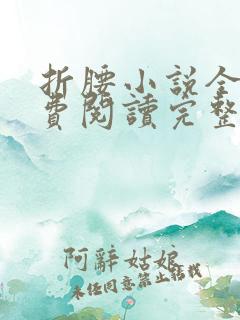 折腰小說全
費閱讀完整
阿辭姑娘
未经同意禁止转载